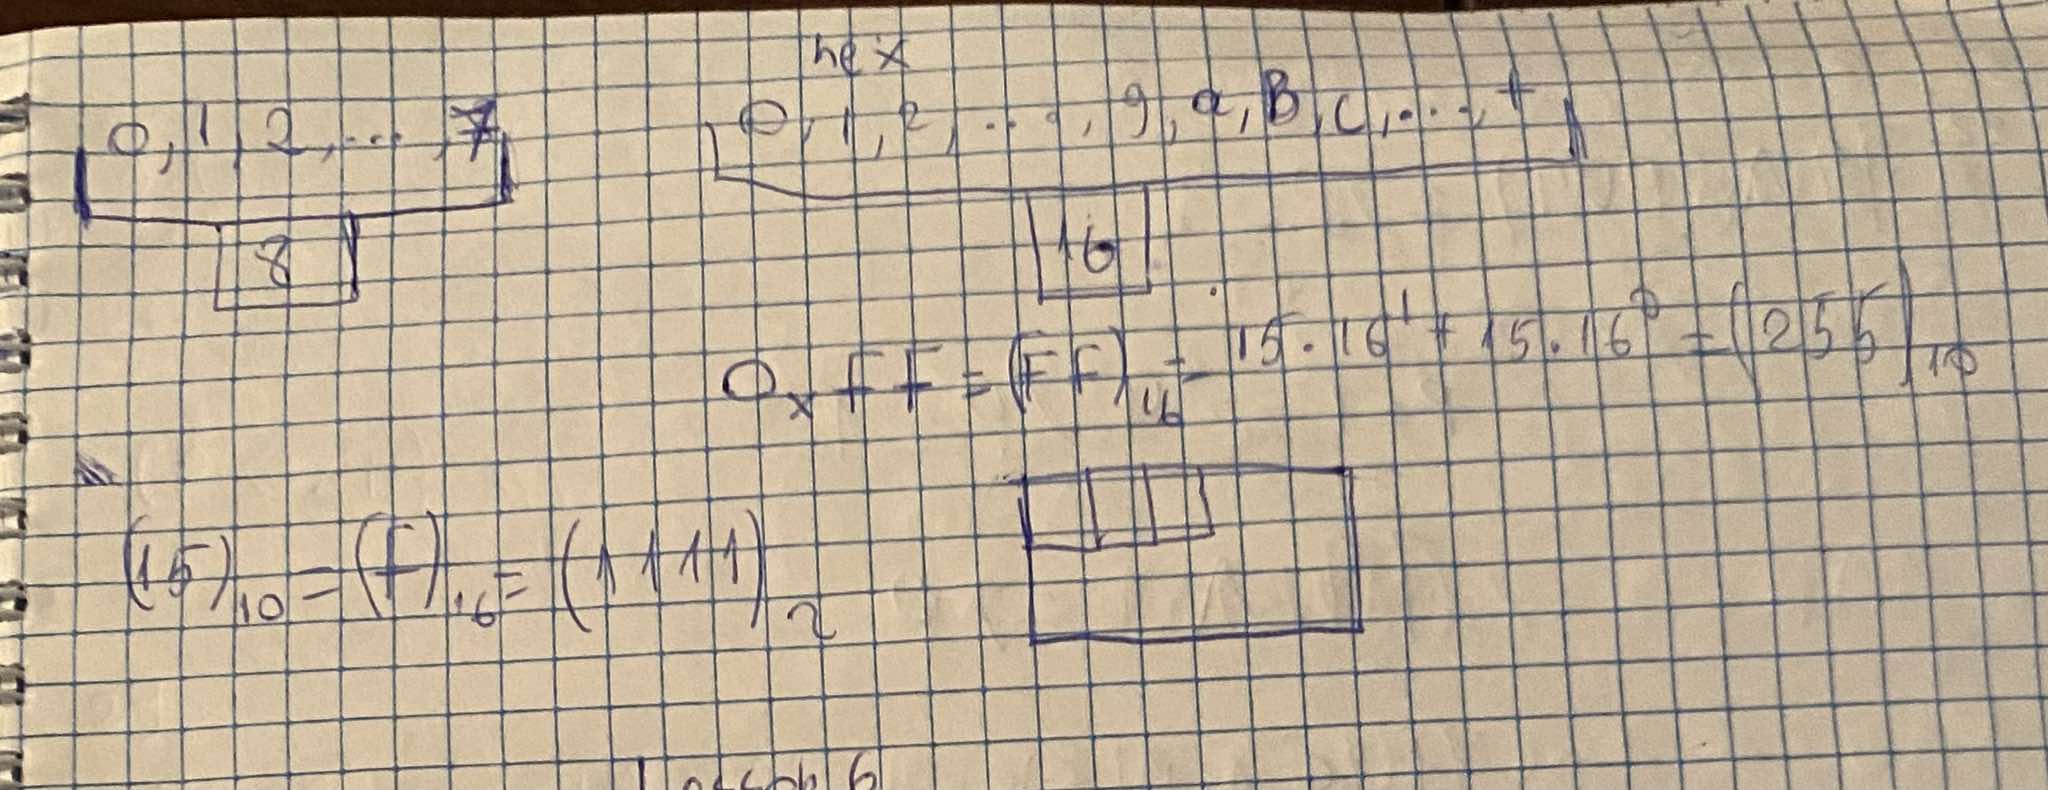 hex
0, 1, 2, ..., 7
0, 1, 2, ..., 9, a, B, c, ..., f
8
16
0xFF = (FF)₁₆ = 15·16¹ + 15·16⁰ = (255)₁₀
(15)₁₀ = (F)₁₆ = (1111)₂